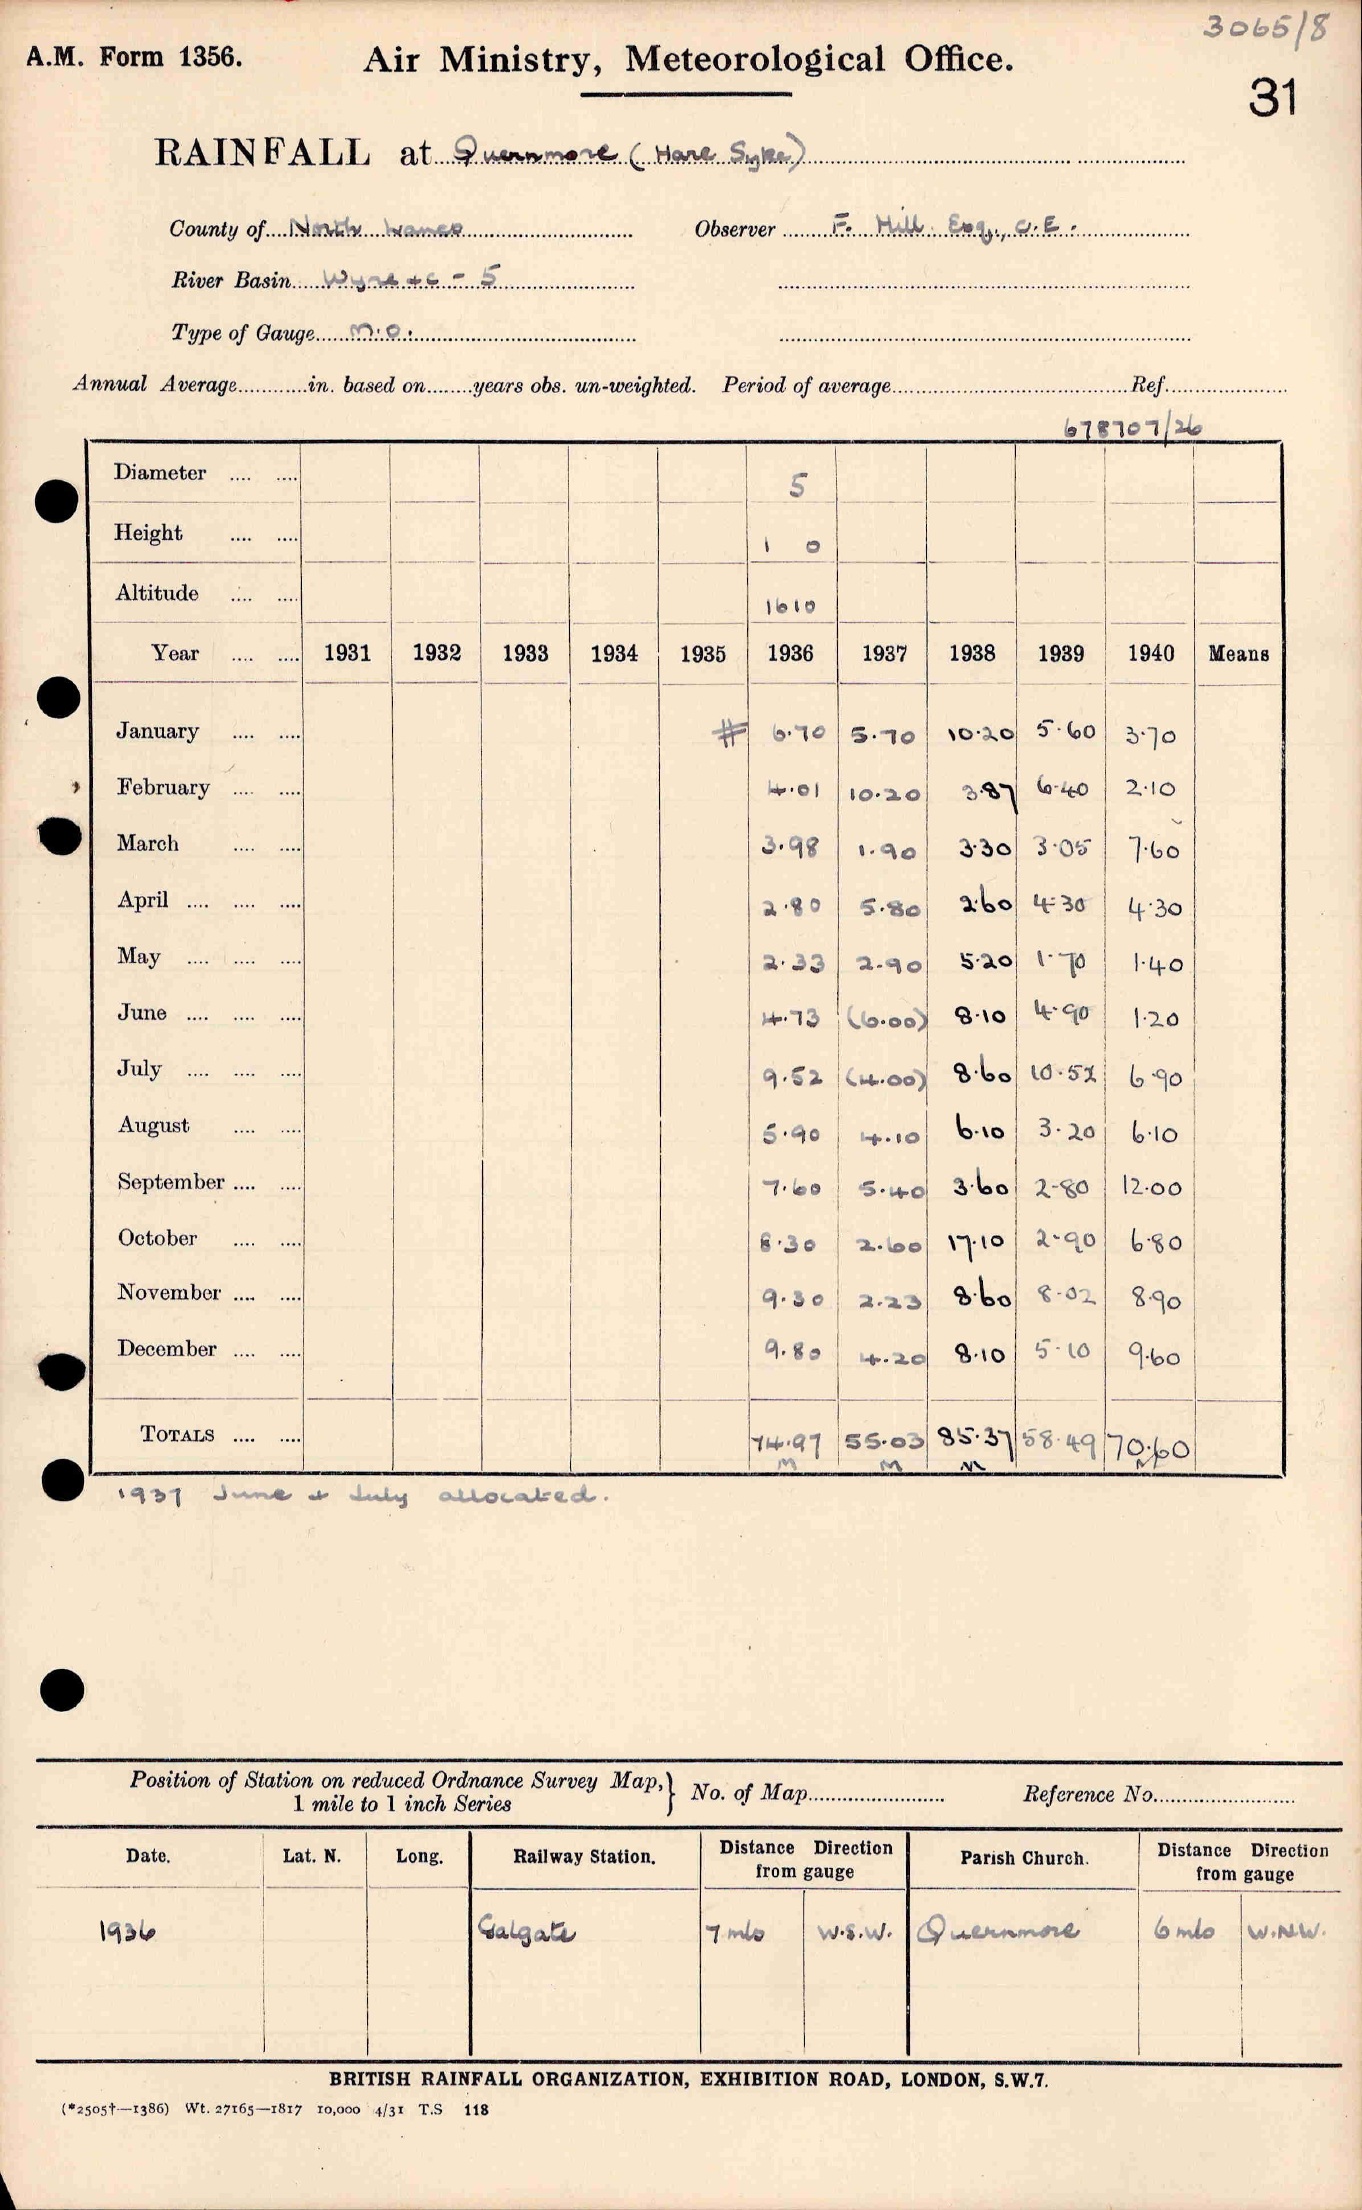 3065/8
A.M. Form 1356. Air Ministry, Meteorological Office.
31
RAINFALL at Quernmore (Hare Syke)
County of North Lancs Observer F. Hill Esq., C.E.
River Basin Wyre &c - 5
Type of Gauge M.O.
Annual Average in. based on years obs. un-weighted. Period of average Ref.
678707/26
Diameter 5
Height 1 0
Altitude 1610
Year 1931 1932 1933 1934 1935 1936 1937 1938 1939 1940 Means
January # 6.70 5.70 10.20 5.60 3.70
February 4.01 10.20 3.87 6.40 2.10
March 3.98 1.90 3.30 3.05 7.60
April 2.80 5.80 2.60 4.30 4.30
May 2.33 2.90 5.20 1.70 1.40
June 4.73 (6.00) 8.10 4.90 1.20
July 9.52 (4.00) 8.60 10.52 6.90
August 5.90 4.10 6.10 3.20 6.10
September 7.60 5.40 3.60 2.80 12.00
October 8.30 2.60 17.10 2.90 6.80
November 9.30 2.23 8.60 8.02 8.90
December 9.80 4.20 8.10 5.10 9.60
TOTALS 74.97 55.03 85.37 58.49 70.60
M M M M
1937 June & July allocated.
Position of Station on reduced Ordnance Survey Map, } No. of Map Reference No.
1 mile to 1 inch Series
Date. Lat. N. Long. Railway Station. Distance Direction from gauge Parish Church. Distance Direction from gauge
1936 Galgate 7 mls W.S.W. Quernmore 6 mls W.N.W.
BRITISH RAINFALL ORGANIZATION, EXHIBITION ROAD, LONDON, S.W.7.
(*2505†—1386) Wt. 27165—1817 10,000 4/31 T.S 118